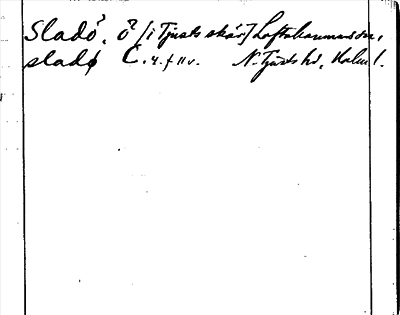 Sladö, ö [i Tjusts skär] Loftahammars sn,
sladø C.4. f II v. N. Tjusts hd, Kalm l.